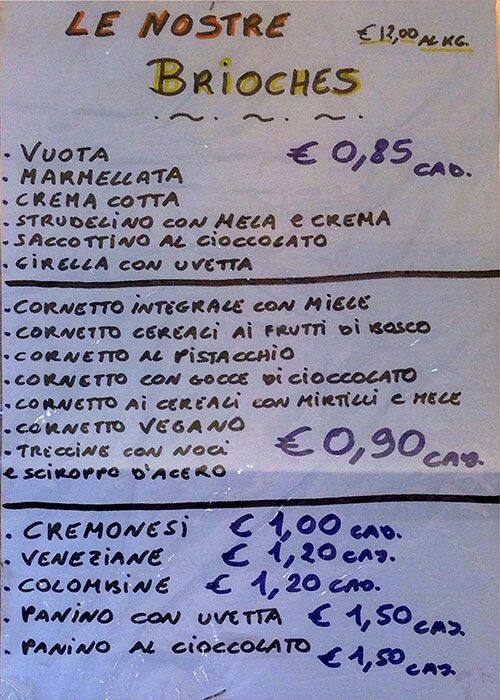 LE NOSTRE € 12,00 AL KG.
BRIOCHES
. VUOTA € 0,85 CAD.
. MARMELLATA
. CREMA COTTA
. STRUDELINO CON MELA e CREMA
. SACCOTTINO AL CIOCCOLATO
. GIRELLA CON UVETTA
. CORNETTO INTEGRALE CON MIELE
. CORNETTO CEREALI AI FRUTTI DI BOSCO
. CORNETTO AL PISTACCHIO
. CORNETTO CON GOCCE DI CIOCCOLATO
. CORNETTO AI CEREALI CON MIRTILLI E MELE
. CORNETTO VEGANO
. TRECCINE CON NOCI € 0,90 CAD.
e SCIROPPO D'ACERO
. CREMONESI € 1,00 CAD.
. VENEZIANE € 1,20 CAD.
. COLOMBINE € 1,20 CAD.
. PANINO CON UVETTA € 1,50 CAD.
. PANINO AL CIOCCOLATO € 1,50 CAD.